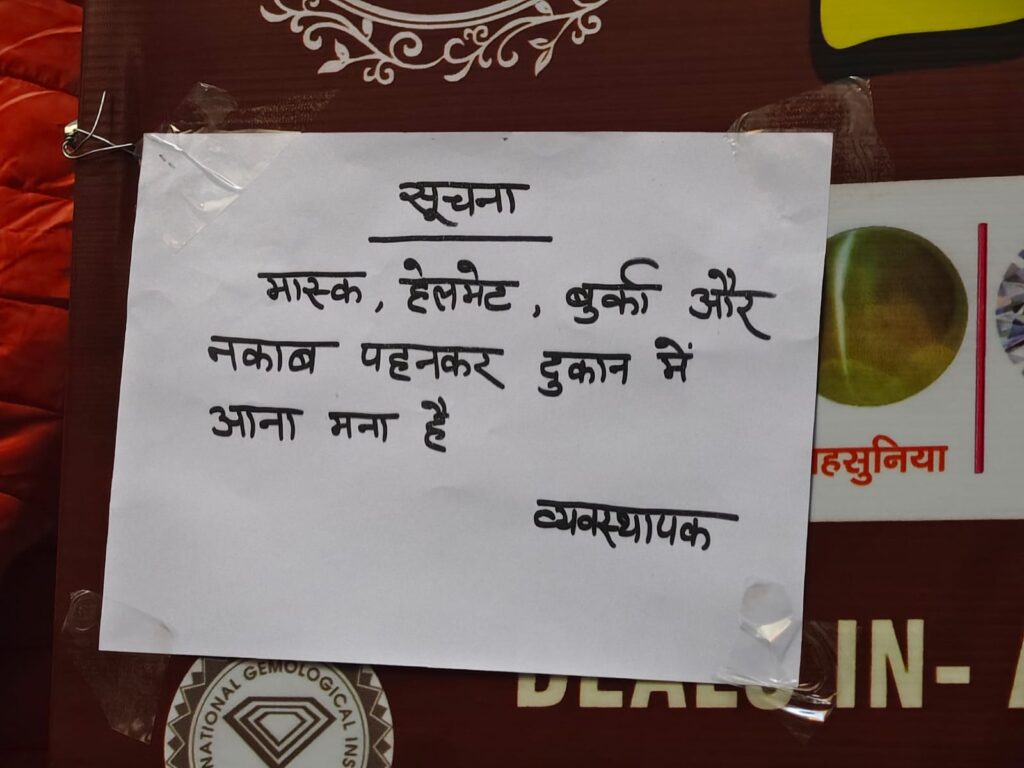 सूचना
मास्क, हेलमेट, बुर्का और
नकाब पहनकर दुकान में
आना मना है
व्यवस्थापक
हसुनिया
DEALS IN-
NATIONAL GEMOLOGICAL INS